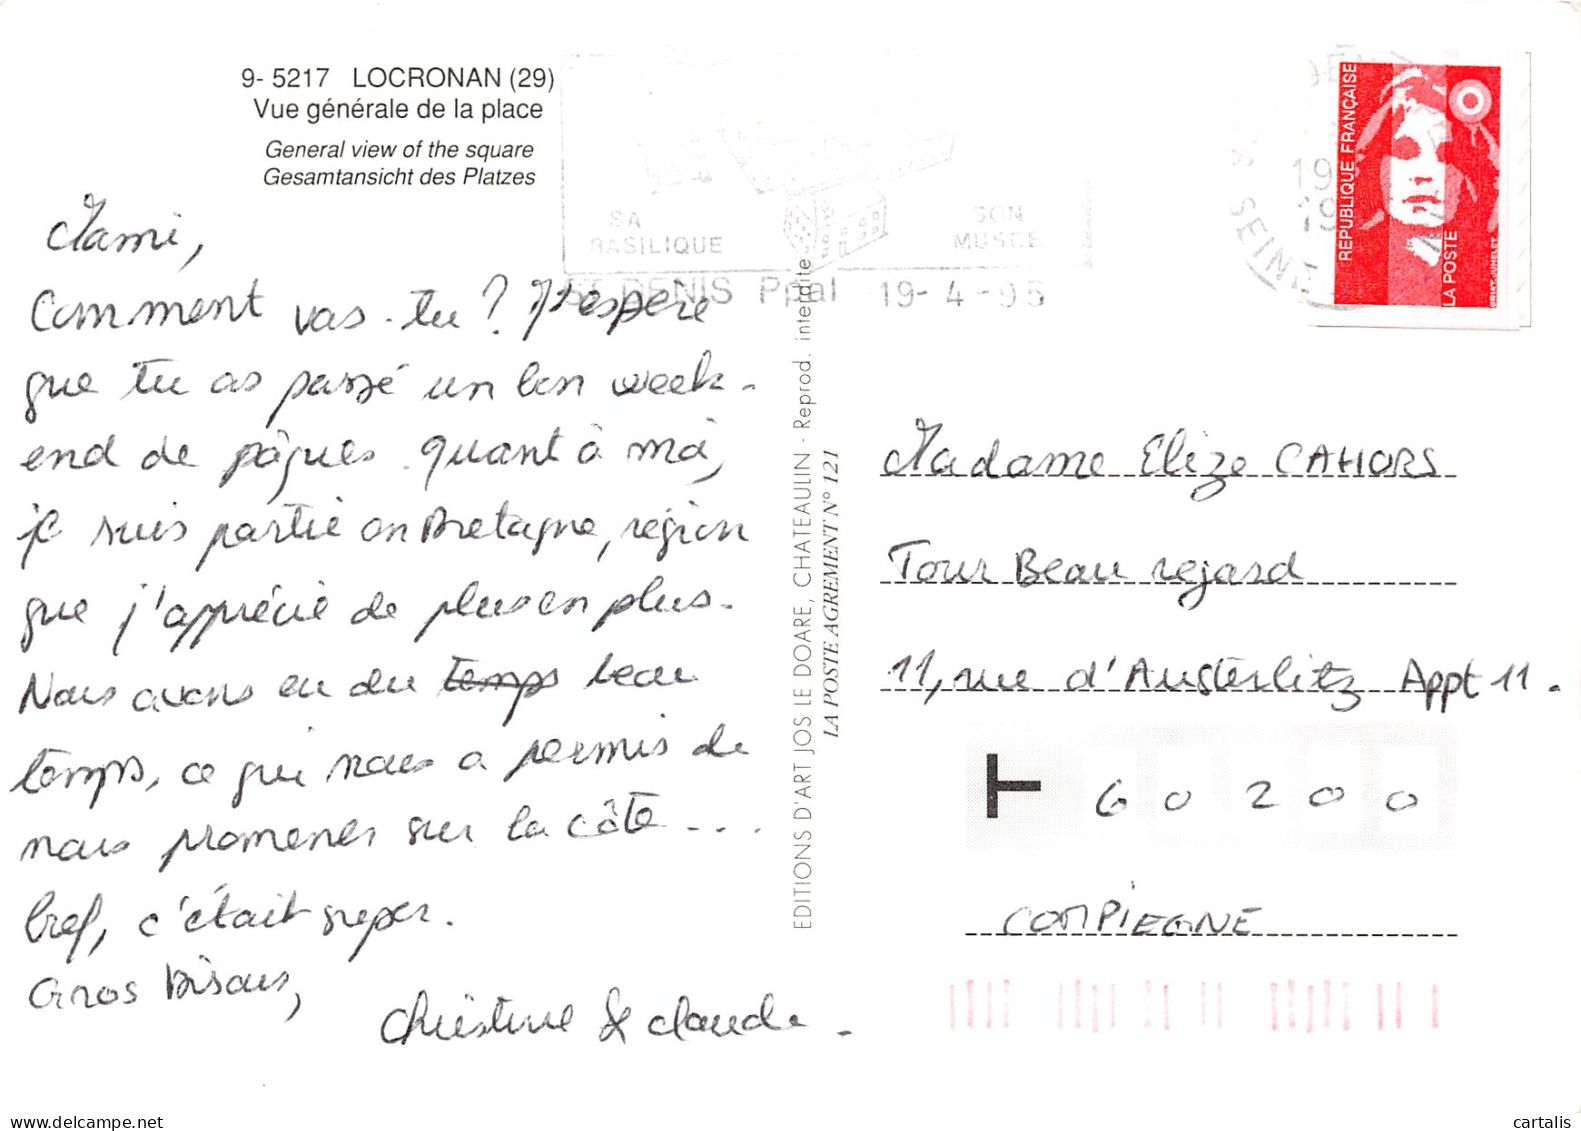 9- 5217 LOCRONAN (29)
Vue générale de la place
General view of the square
Gesamtansicht des Platzes
Mami,
Comment vas-tu ? J'espère
que tu as passé un bon week-
end de pâques. quant à moi,
je suis partie en Bretagne, région
que j'apprécie de plus en plus.
Nous avons eu du temps beau
temps, ce qui nous a permis de
nous promener sur la côte...
bref, c'était super.
Gros Bisous,
Christine & claude.
SA
BASILIQUE
SON
MUSEE
ST DENIS Ppal 19-4-95
EDITIONS D'ART JOS LE DOARE, CHATEAULIN - Reprod. interdite
LA POSTE AGREMENT N° 121
SEINE
19
19
REPUBLIQUE FRANÇAISE
LA POSTE
BRIAT-JUMELET
Madame Elize CAHORS
Tour Beau regard
11, rue d'Austerlitz Appt 11.
60200
COMPIEGNE
cartalis
www.delcampe.net